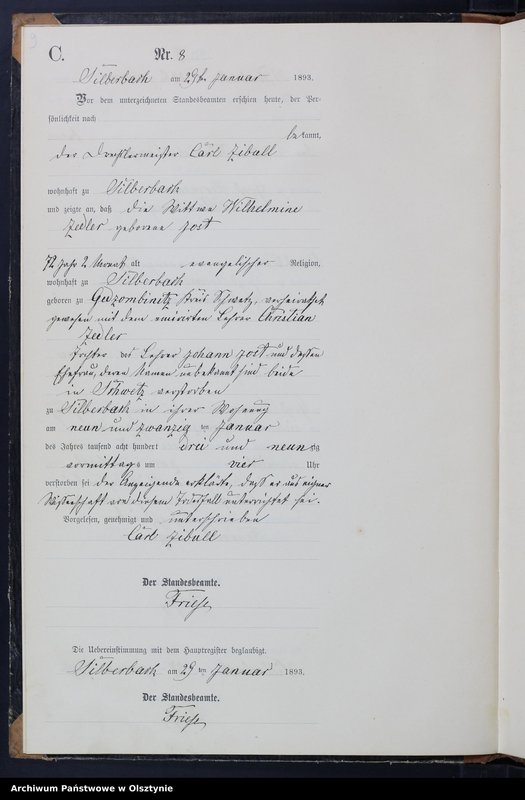 C.
Nr. 8
Silberbach am 29ten Januar 1893.
Vor dem unterzeichneten Standesbeamten erschien heute, der Per-
sönlichkeit nach
bekannt,
der Drechslermeister Carl Ziball
wohnhaft zu Silberbach
und zeigte an, daß die Wittwe Wilhelmine
Zedler geborene Jost
72 Jahr 2 Monat alt evangelischer Religion,
wohnhaft zu Silberbach
geboren zu Kreis Schwetz, verheirathet
gewesen mit dem emeritirten Lehrer Christian
Zedler
Tochter des Lehrer Johann Jost und dessen
Ehefrau, deren Namen unbekannt sind beide
in Schwetz verstorben
zu Silberbach in ihrer Wohnung
am neun und zwanzig ten Januar
des Jahres tausend acht hundert drei und neunzig
vormittags um vier Uhr
verstorben sei der Anzeigende erklärte, dass er aus eigener
Wissenschaft von diesem Todesfall unterrichtet sei.
Vorgelesen, genehmigt und unterschrieben
Carl Ziball
Der Standesbeamte.
Friese
Die Uebereinstimmung mit dem Hauptregister beglaubigt.
Silberbach am 29 ten Januar 1893.
Der Standesbeamte.
Friese
Archiwum Państwowe w Olsztynie